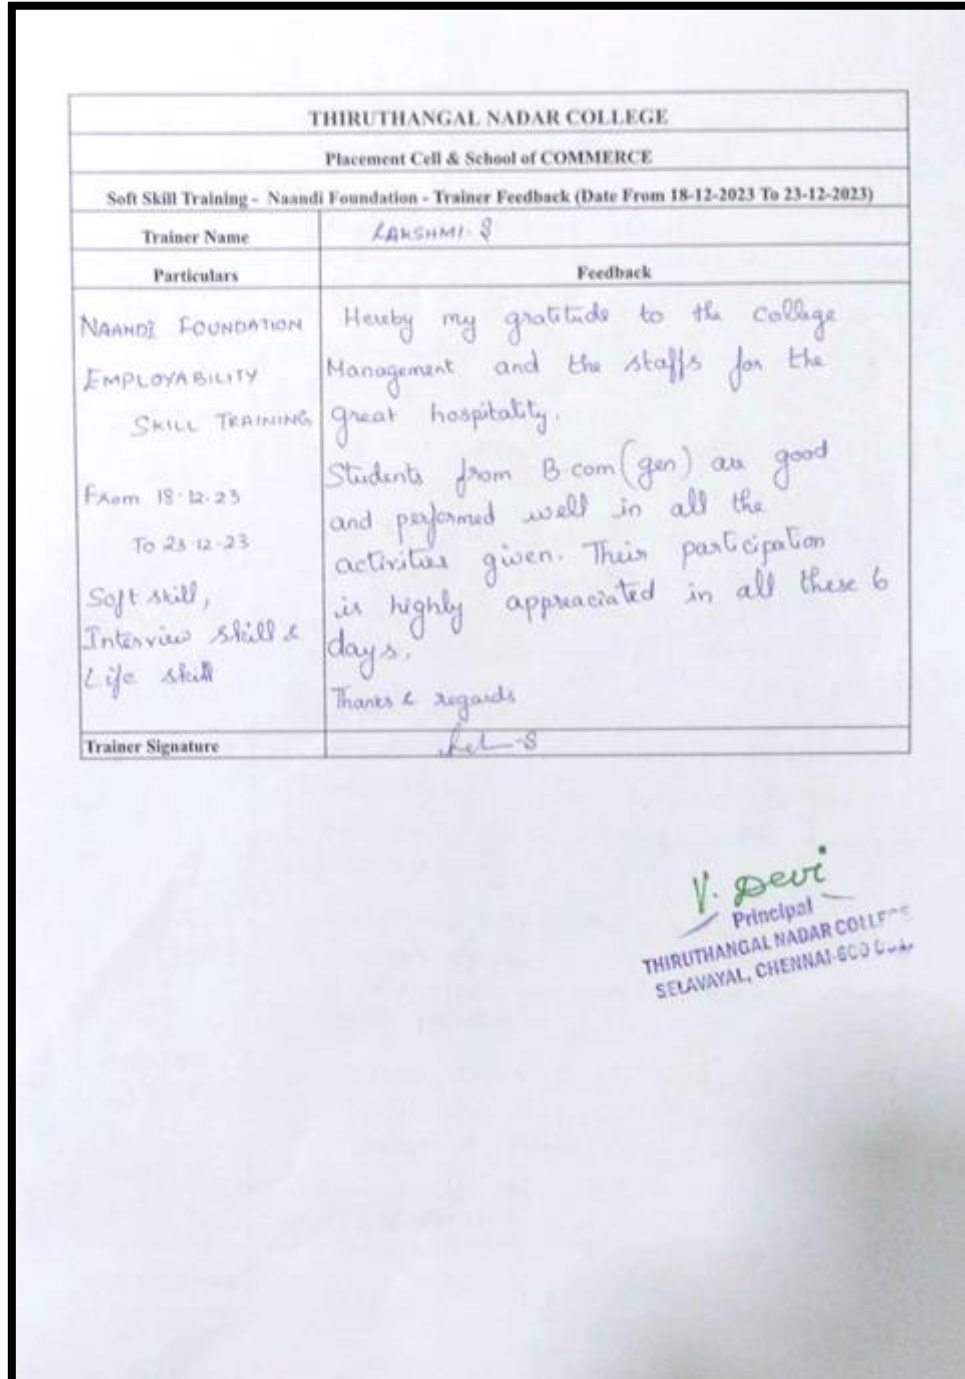 THIRUTHANGAL NADAR COLLEGE
Placement Cell & School of COMMERCE
Soft Skill Training - Naandi Foundation - Trainer Feedback (Date From 18-12-2023 To 23-12-2023)
Trainer Name
LAKSHMI. S
Particulars
Feedback
NAANDI FOUNDATION
EMPLOYABILITY
SKILL TRAINING
From 18-12-23
To 23-12-23
Soft skill,
Interview skill &
Life skill
Hereby my gratitude to the College
Management and the staffs for the
great hospitality.
Students from B com (gen) are good
and performed well in all the
activities given. Their participation
is highly appreaciated in all these 6
days.
Thanks & regards
Trainer Signature
V. Devi
Principal
THIRUTHANGAL NADAR COLLEGE
SELAVAYAL, CHENNAI-600